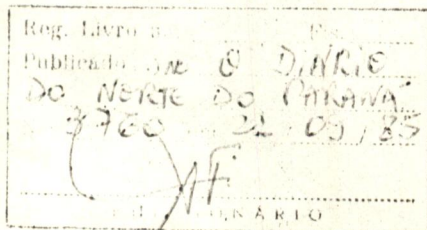 Reg. Livro n.
Publicado no O DIÁRIO
DO NORTE DO PARANÁ
3760 22 05 85